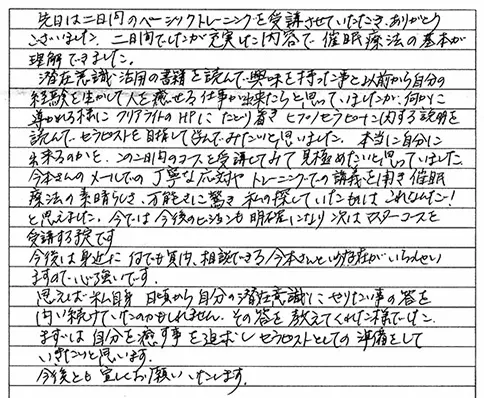 先日は二日間のベーシックトレーニングを受講させていただき、ありがとう
ございました。二日間でしたが充実した内容で催眠療法の基本が
理解できました。
潜在意識活用の書籍を読んで興味を持った事と以前から自分の
経験を生かして人を癒せる仕事が出来たらと思っていましたが、何かに
導かれる様にクリアライトのHPにたどり着きヒプノセラピーに関する説明を
読んで、セラピストを目指して学んでみたいと思いました。本当に自分に
出来るのかと、この二日間のコースを受講してみて見極めたいと思っていました。
今本さんのメールでの丁寧な応対やトレーニングでの講義を聞き催眠
療法の素晴らしさ、万能さに驚き私の探していたものはこれなんだ!
と思えました。今では今後のビジョンも明確になり次はマスターコースを
受講する予定です
今後は身近に何でも質問、相談できる今本さんという存在がいらっしゃい
ますので心強いです。
思えば私自身日頃から自分の潜在意識にやりたい事の答を
問い続けていたのかもしれません。その答を教えてくれた様でした。
まずは自分を癒す事を追求しセラピストとしての準備をして
いきたいと思います。
今後とも宜しくお願いいたします。